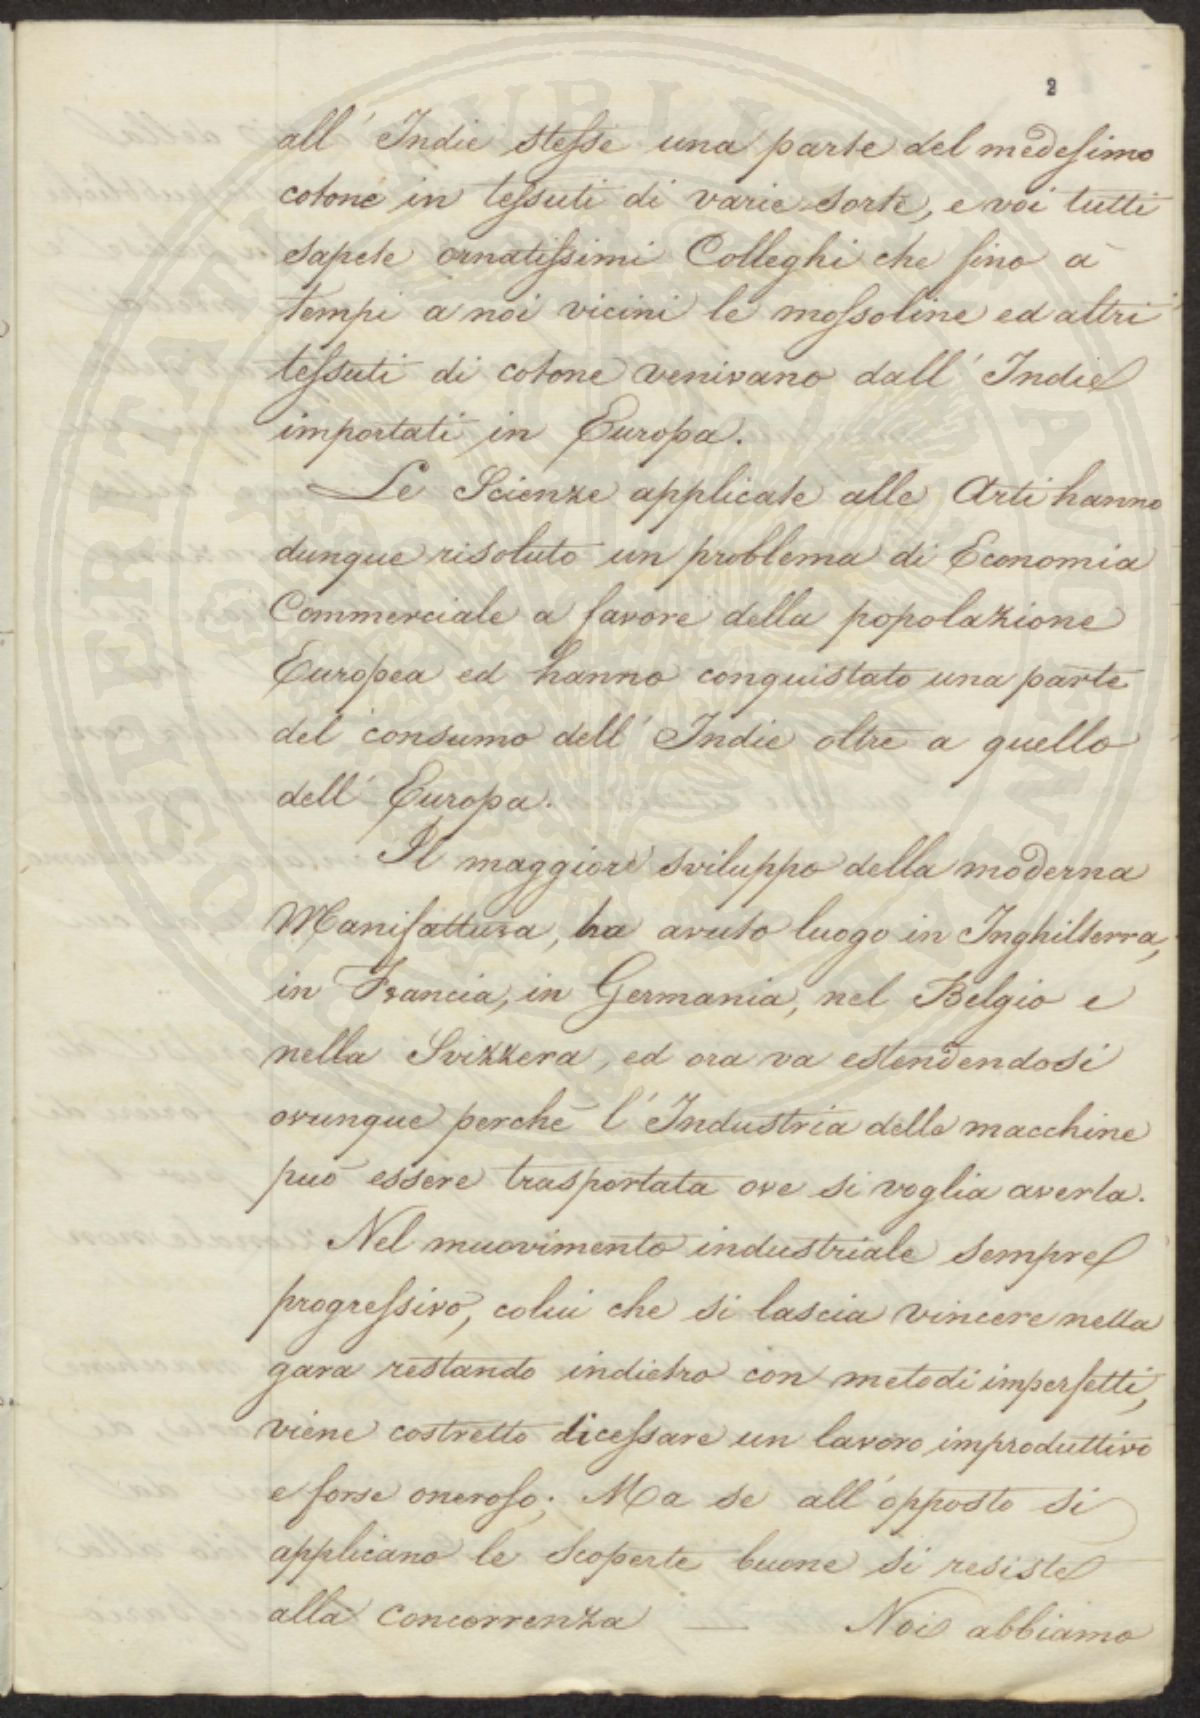 2
all' Indie stesse una parte del medesimo
cotone in tessuti di varie sorte, e voi tutti
sapete ornatissimi Colleghi che fino a
tempi a noi vicini le mossoline ed altri
tessuti di cotone venivano dall' Indie
importati in Europa.
Le Scienze applicate alle Arti hanno
dunque risoluto un problema di Economia
Commerciale a favore della popolazione
Europea ed hanno conquistato una parte
del consumo dell' Indie oltre a quello
dell' Europa.
Il maggiore sviluppo della moderna
Manifattura, ha avuto luogo in Inghilterra,
in Francia, in Germania, nel Belgio e
nella Svizzera, ed ora va estendendosi
ovunque perchè l' Industria delle macchine
può essere trasportata ove si voglia averla.
Nel muovimento industriale sempre
progressivo, colui che si lascia vincere nella
gara restando indietro con metodi imperfetti,
viene costretto di cessare un lavoro improduttivo
e forse oneroso; Ma se all' opposto si
applicano le scoperte buone si resiste
alla concorrenza — Noi abbiamo